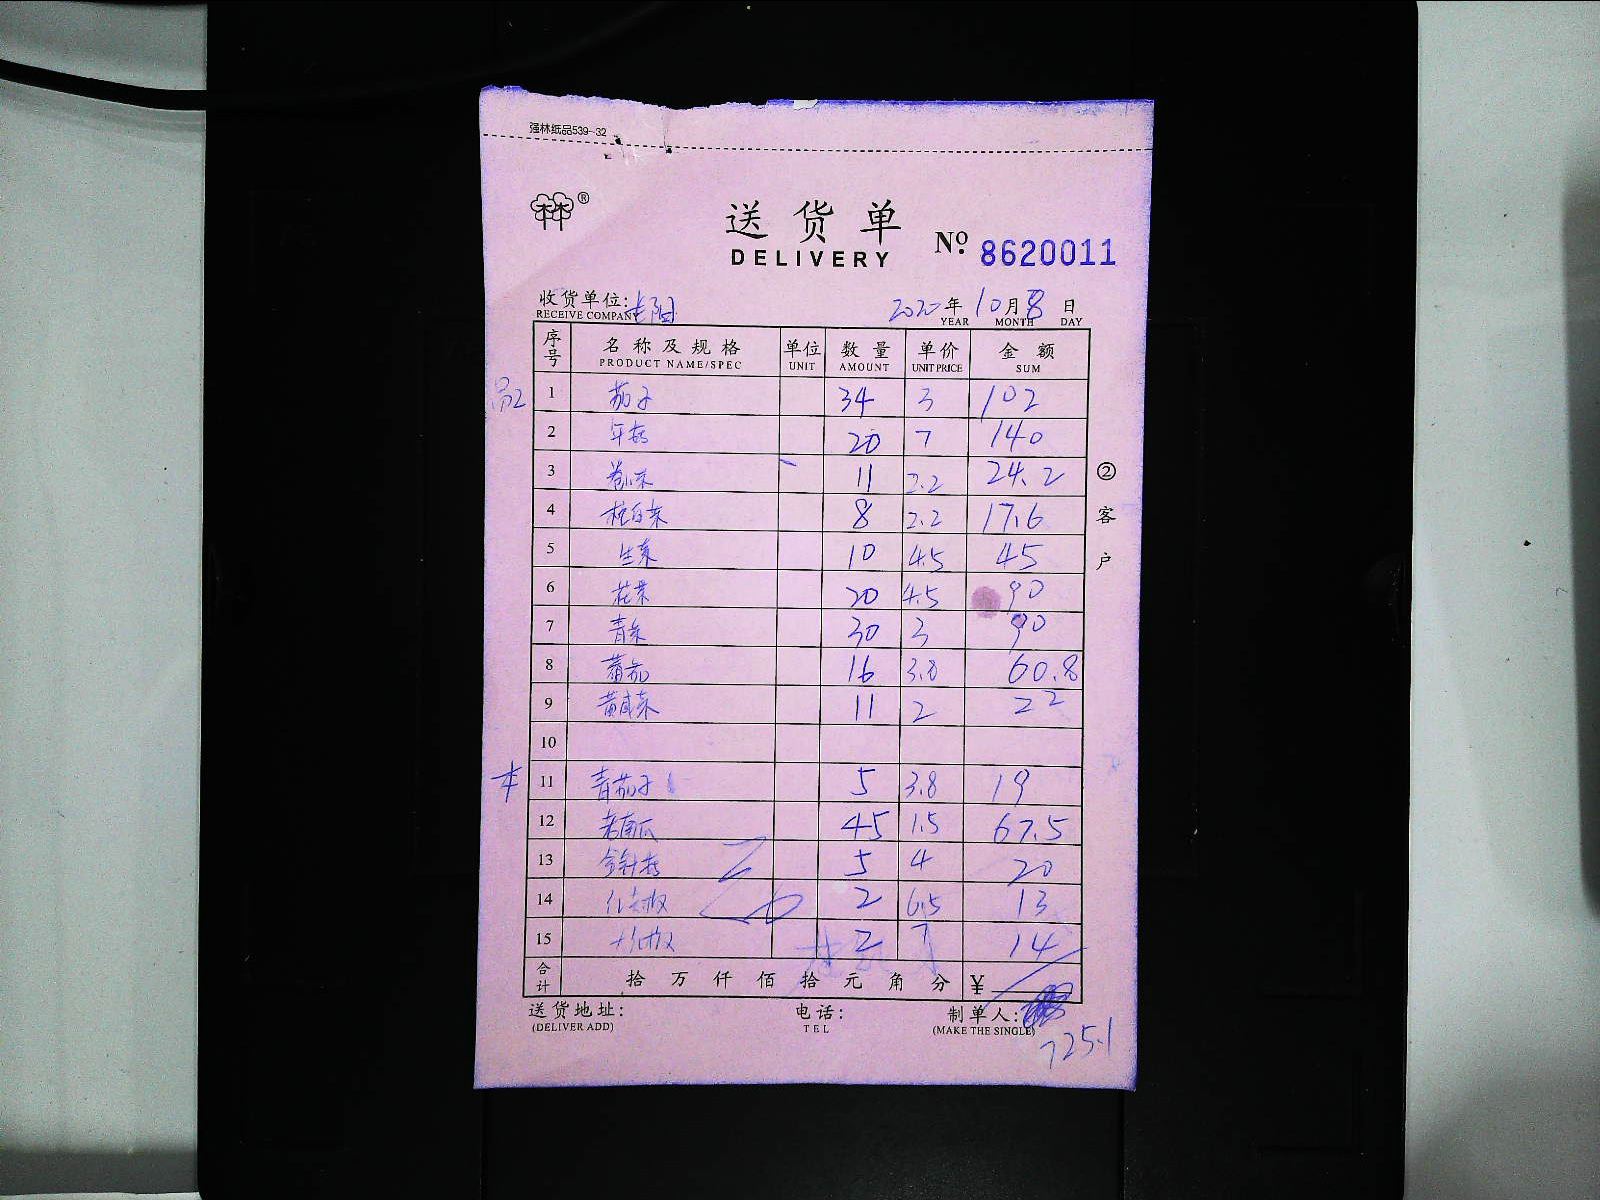 强林纸品539-32
林®
送货单
DELIVERY
№ 8620011
收货单位: 2020年10月8日
RECEIVE COMPANY YEAR MONTH DAY
序号 名称及规格 单位 数量 单价 金额
PRODUCT NAME/SPEC UNIT AMOUNT UNIT PRICE SUM
1 茄子 34 3 102
2 20 7 140
3 卷心菜 11 2.2 24.2
4 杭白菜 8 2.2 17.6
5 生菜 10 4.5 45
6 花菜 20 4.5 90
7 青菜 30 3 90
8 蕃茄 16 3.8 60.8
9 黄咸菜 11 2 22
10
本 11 青茄子 5 3.8 19
12 老南瓜 45 1.5 67.5
13 金针菇 5 4 20
14 2 6.5 13
15 2 7 14
合计 拾万仟佰拾元角分 ¥
送货地址: 电话: 制单人:
(DELIVER ADD) TEL (MAKE THE SINGLE)
725.1
②客户